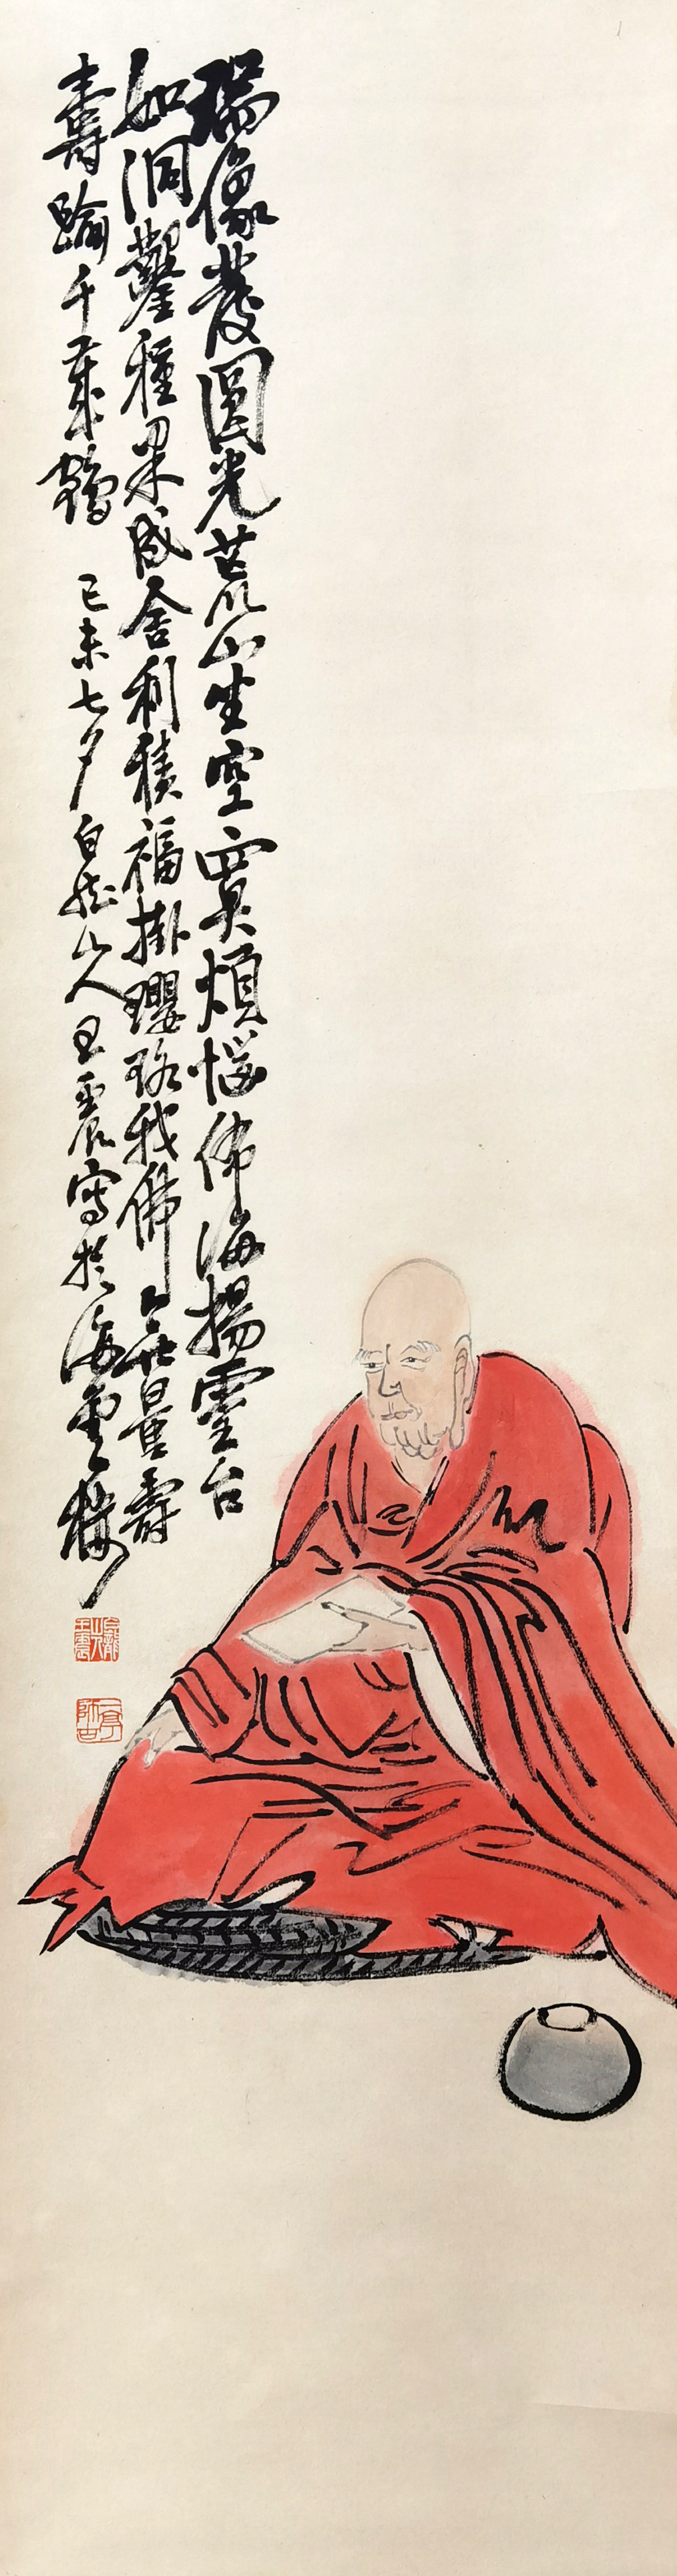 瑞像發圓光芒以山坐空冥煩惱佛海揚靈台
如洞鑿種果成舍利積福掛瓔珞我佛無量壽
壽踰千歲鶴 己未七夕白龍山人王震寫於海雲樓